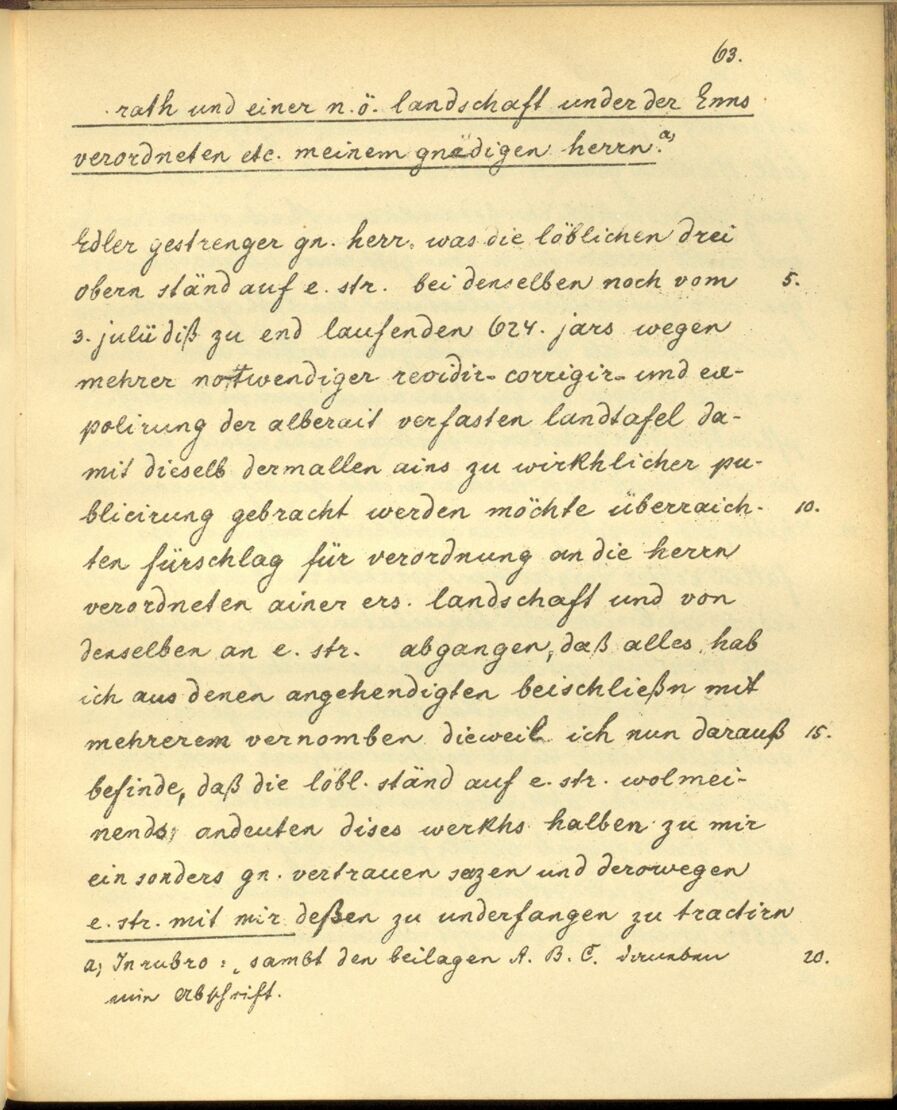 63.
rath und einer n. ö. landschaft under der Enns
verordneten etc. meinem gnädigen herrn. a)
Edler gestrenger gn. herr, was die löblichen drei
obern ständ auf e. str. bei denselben noch vom 5.
3. julii diß zu end laufenden 624. jars wegen
mehrer nottwendiger revidir- corrigir- und ex-
polirung der alberait verfasten landtafel da-
mit dieselb dermallen ains zu wirkhlicher pu-
blicirung gebracht werden möchte überraich- 10.
ten fürschlag für verordnung an die herrn
verordneten ainer ers. landschaft und von
denselben an e. str. abgangen, daß alles hab
ich aus denen angehendigten beischließn mit
mehrerem vernomben dieweil ich nun darauß 15.
befinde, daß die löbl. ständ auf e. str. wolmei-
nends andeuten dises werkhs halben zu mir
ein sonders gn. vertrauen sezen und derowegen
e. str. mit mir deßen zu underfangen zu tractirn
a) In rubro: „sambt den beilagen A. B. C. 20.
Abschrift.